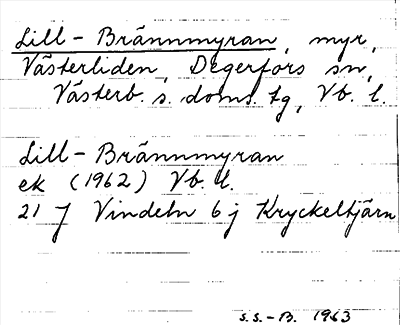 Lill-Brännmyran, myr,
Västerliden, Degerfors sn,
Västerb. s. doms. tg, Vb. l.
Lill-Brännmyran
ek (1962) Vb. l.
21 J Vindeln 6 j Kryckeltjärn
s.s.-B. 1963